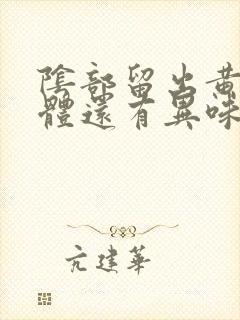 陰部留出黃
體還有異味
亢建華